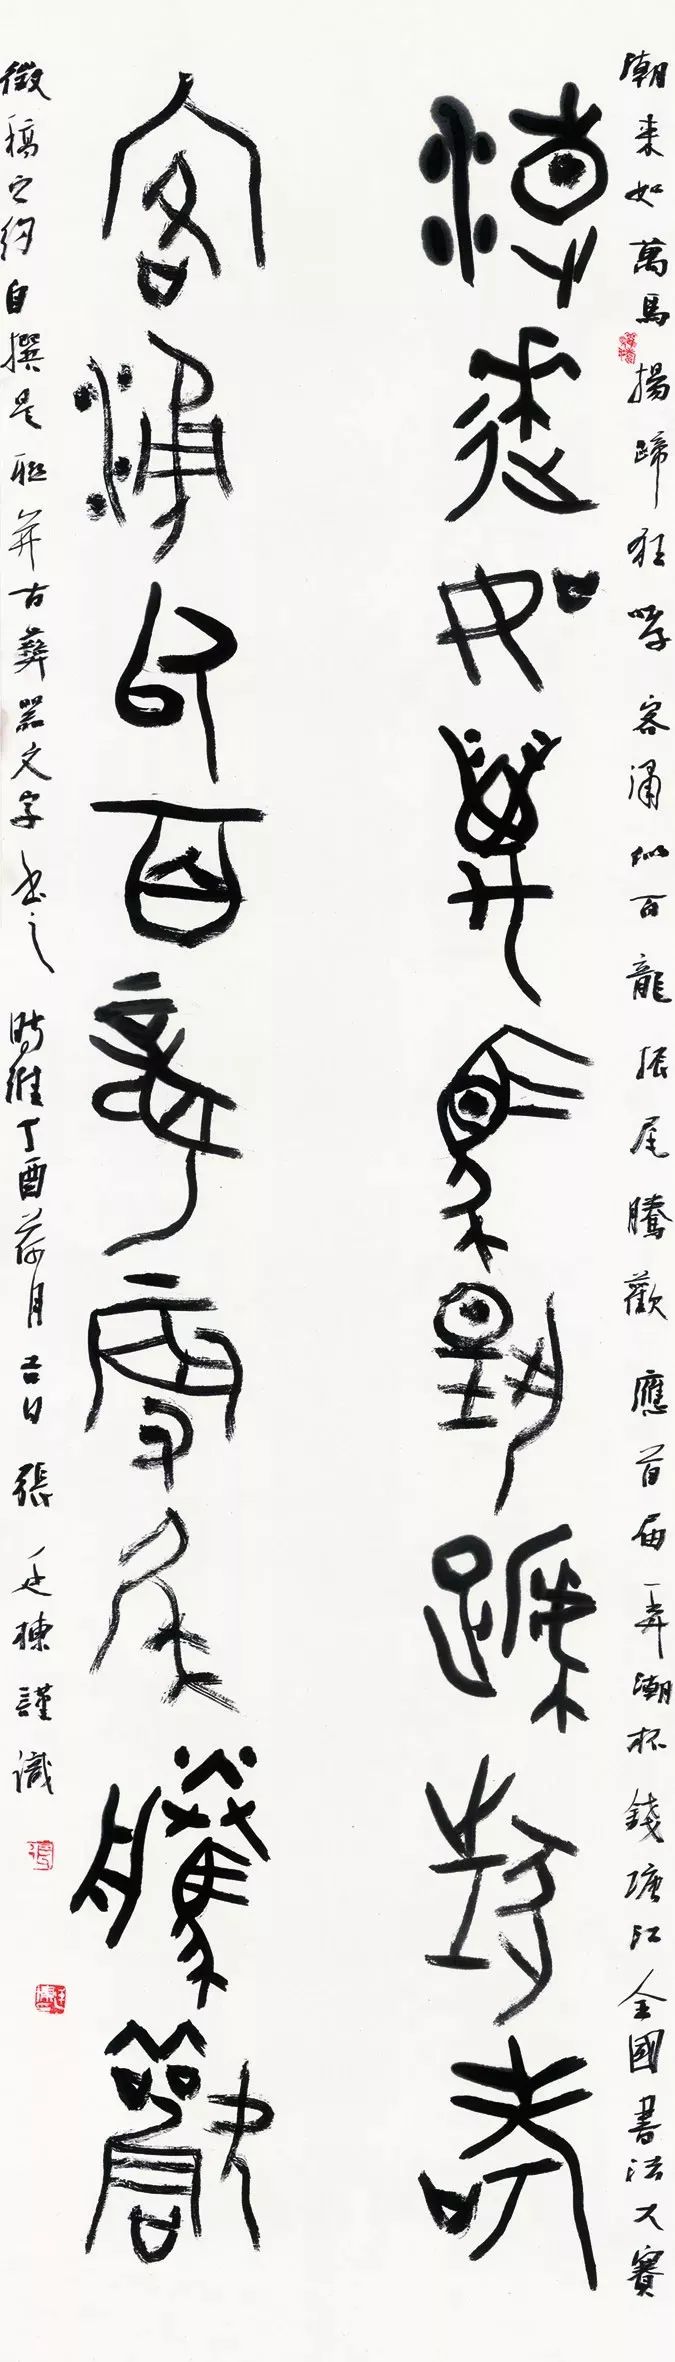 潮来如萬馬揚蹄狂哮客涌似百龍振尾騰歡應首届弄潮杯錢塘江全國書法大賽
潮來如萬馬揚蹄狂哮
客涌似百龍振尾騰歡
徵稿之約自撰是聯并古彝器文字書之時維丁酉荷月吉日張廷棟謹識